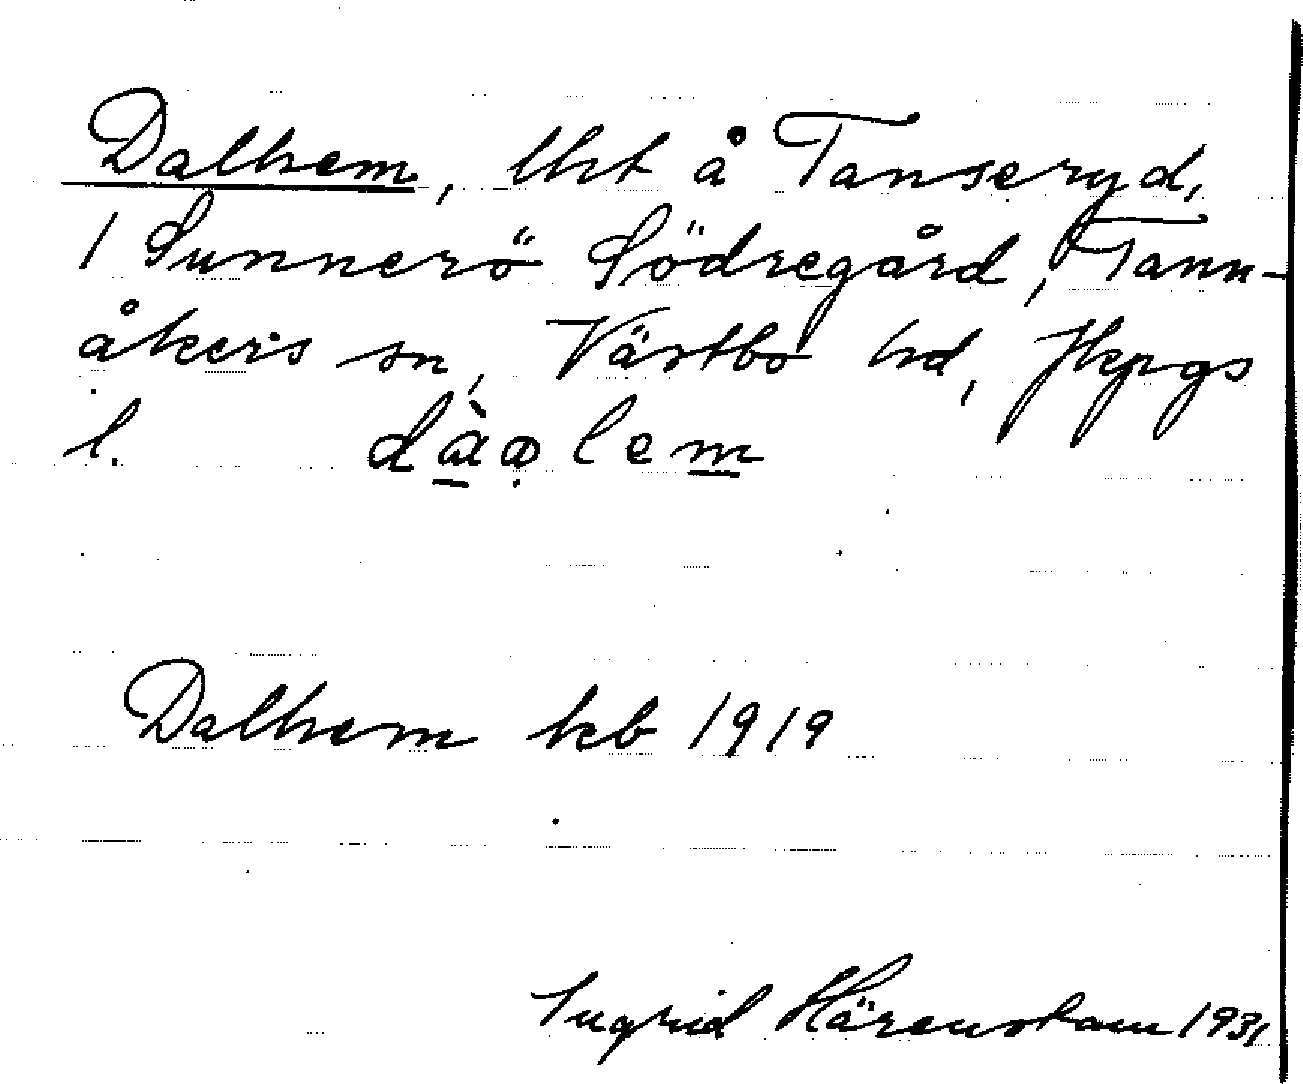 Dalhem, lht å Tanseryd,
1 Sunnerö Södregård, Tann-
åkers sn, Västbo hd, Jkpgs
l. dàɑlem
Dalhem kb 1919
Ingrid Härenstam 1931